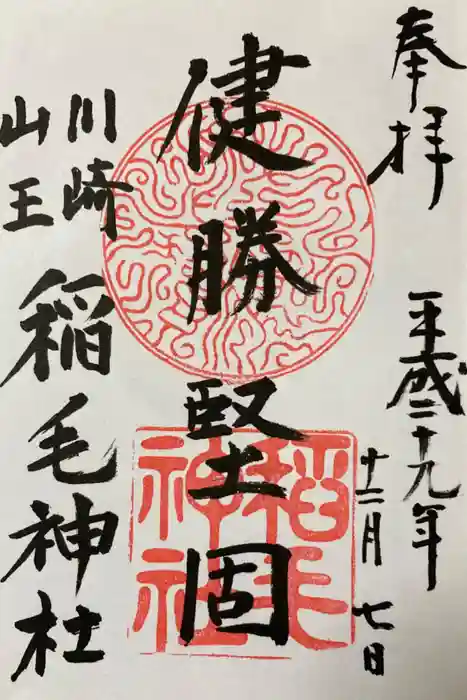 奉拝
平成二十九年
十二月七日
健勝堅固
川崎
山王
稲毛神社
稲毛神社